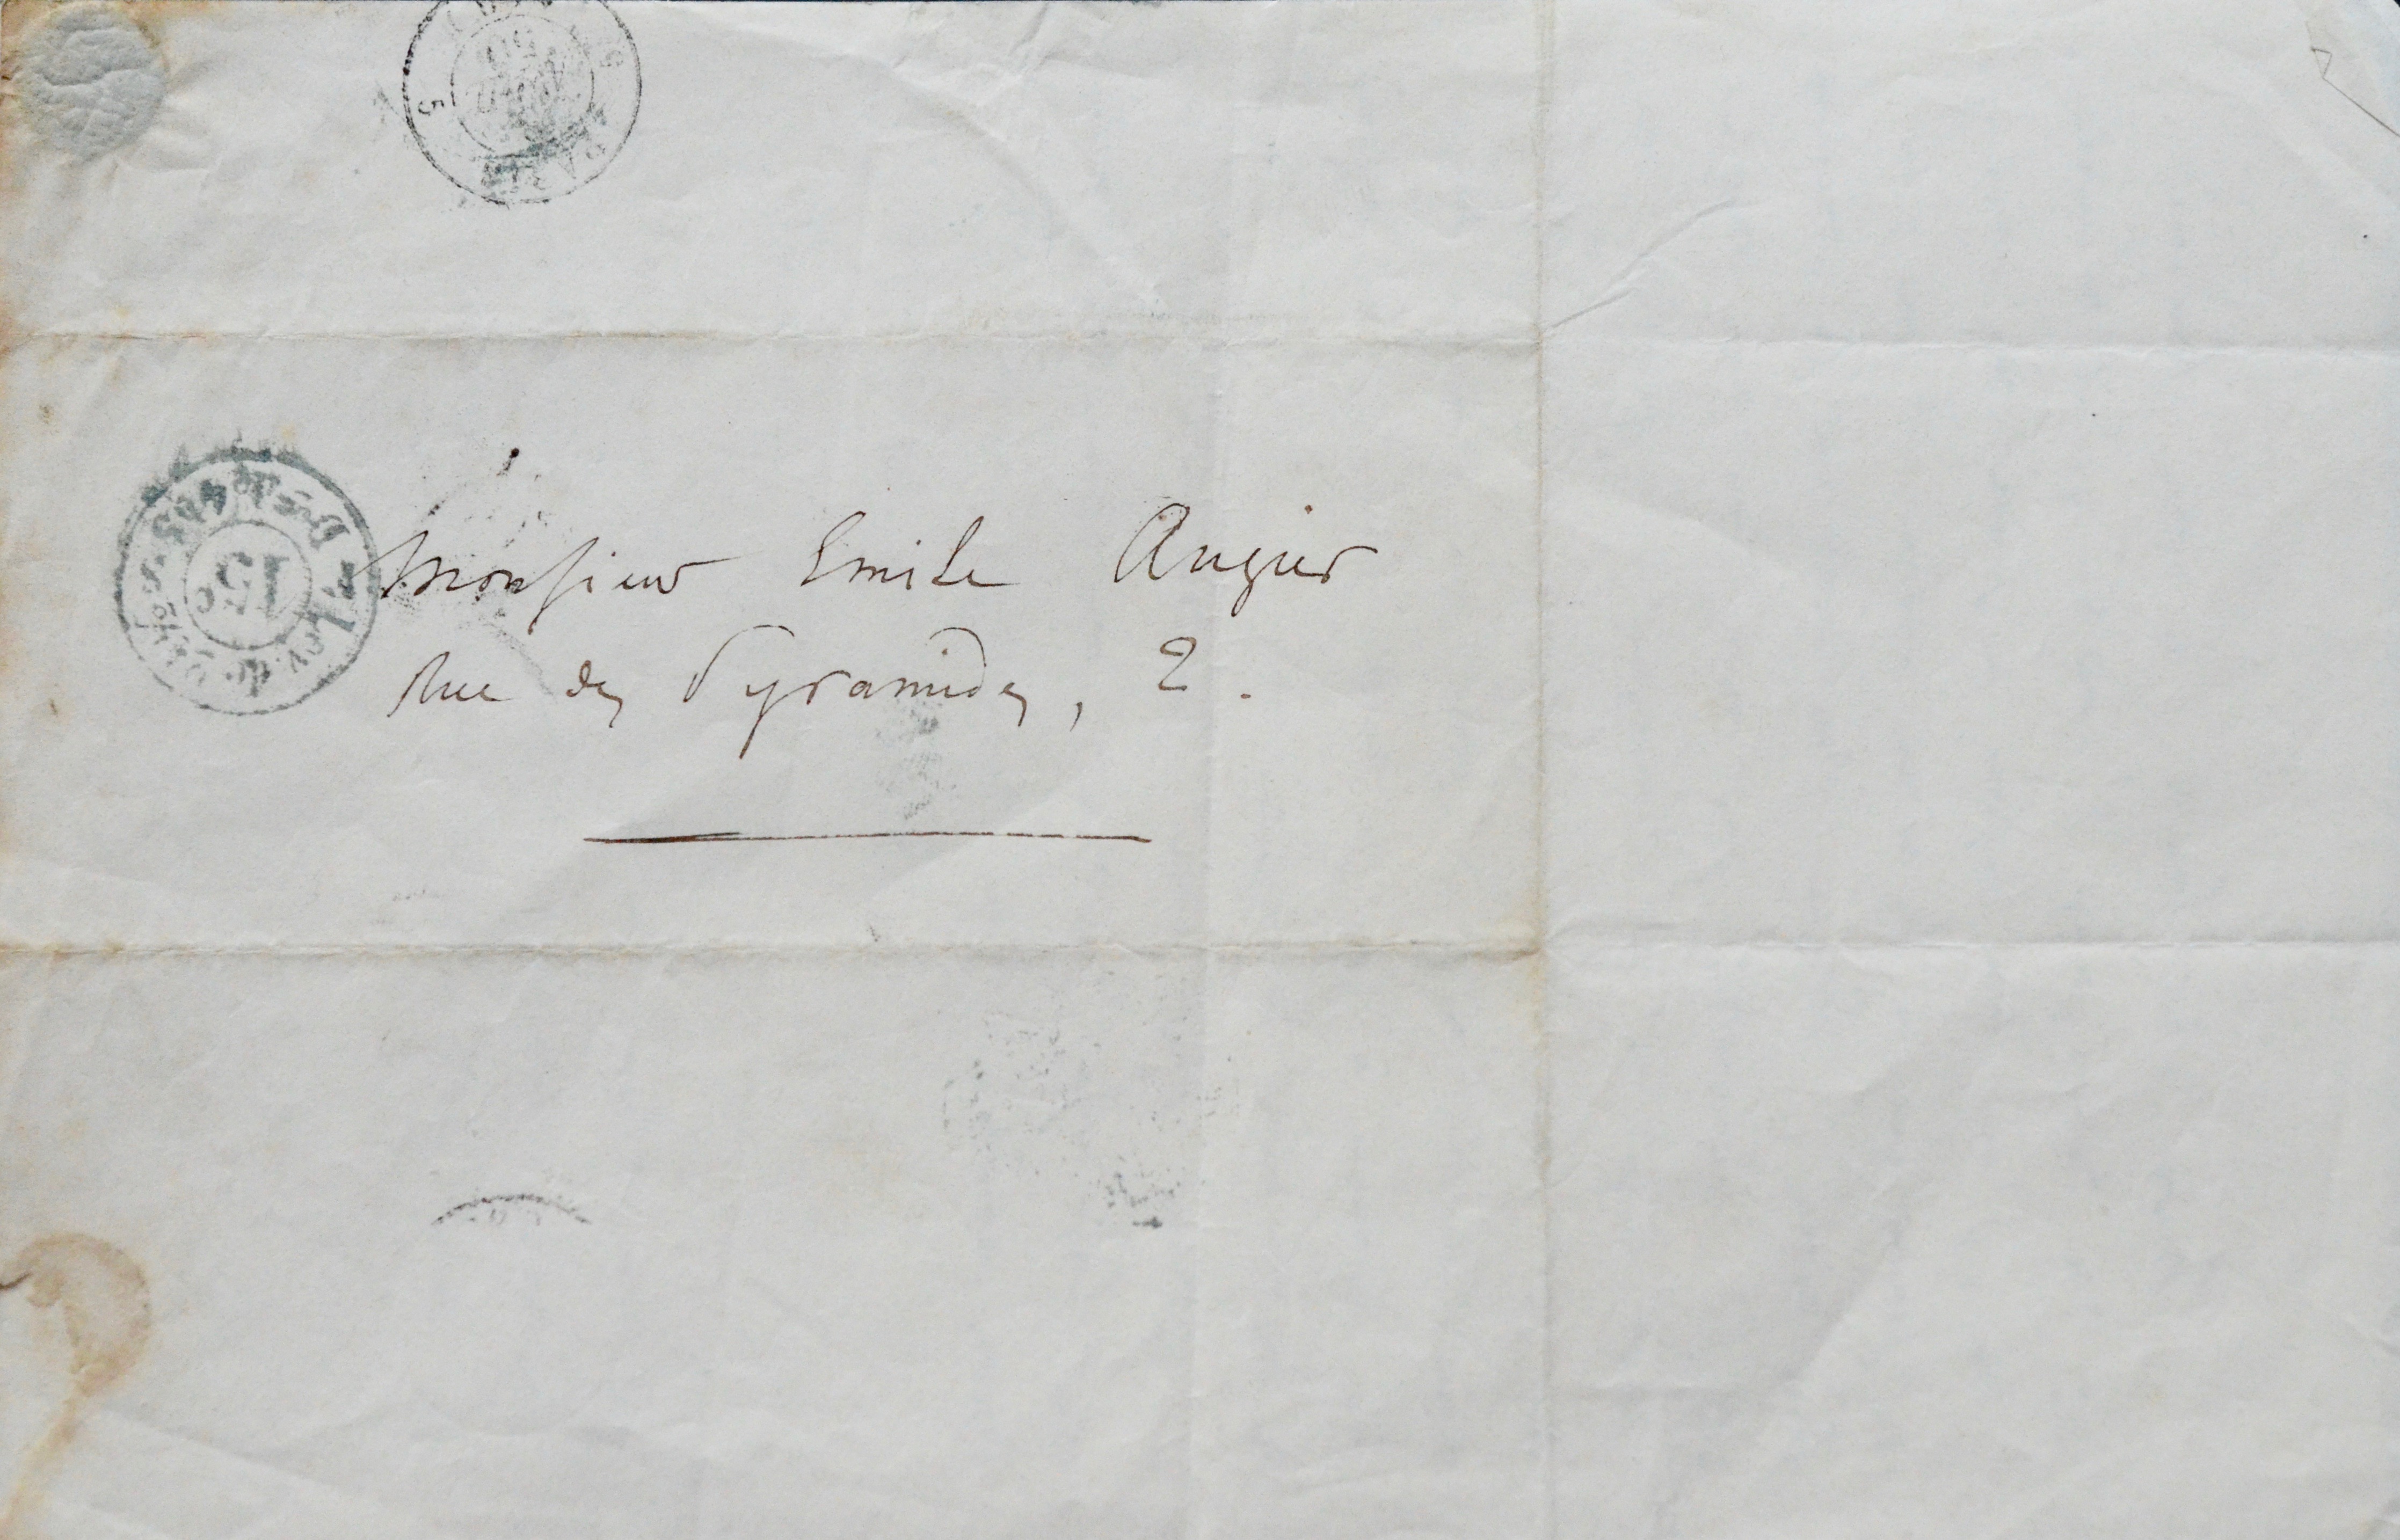 Monsieur Emile Augier
Rue des Pyramides, 2.
15c
5